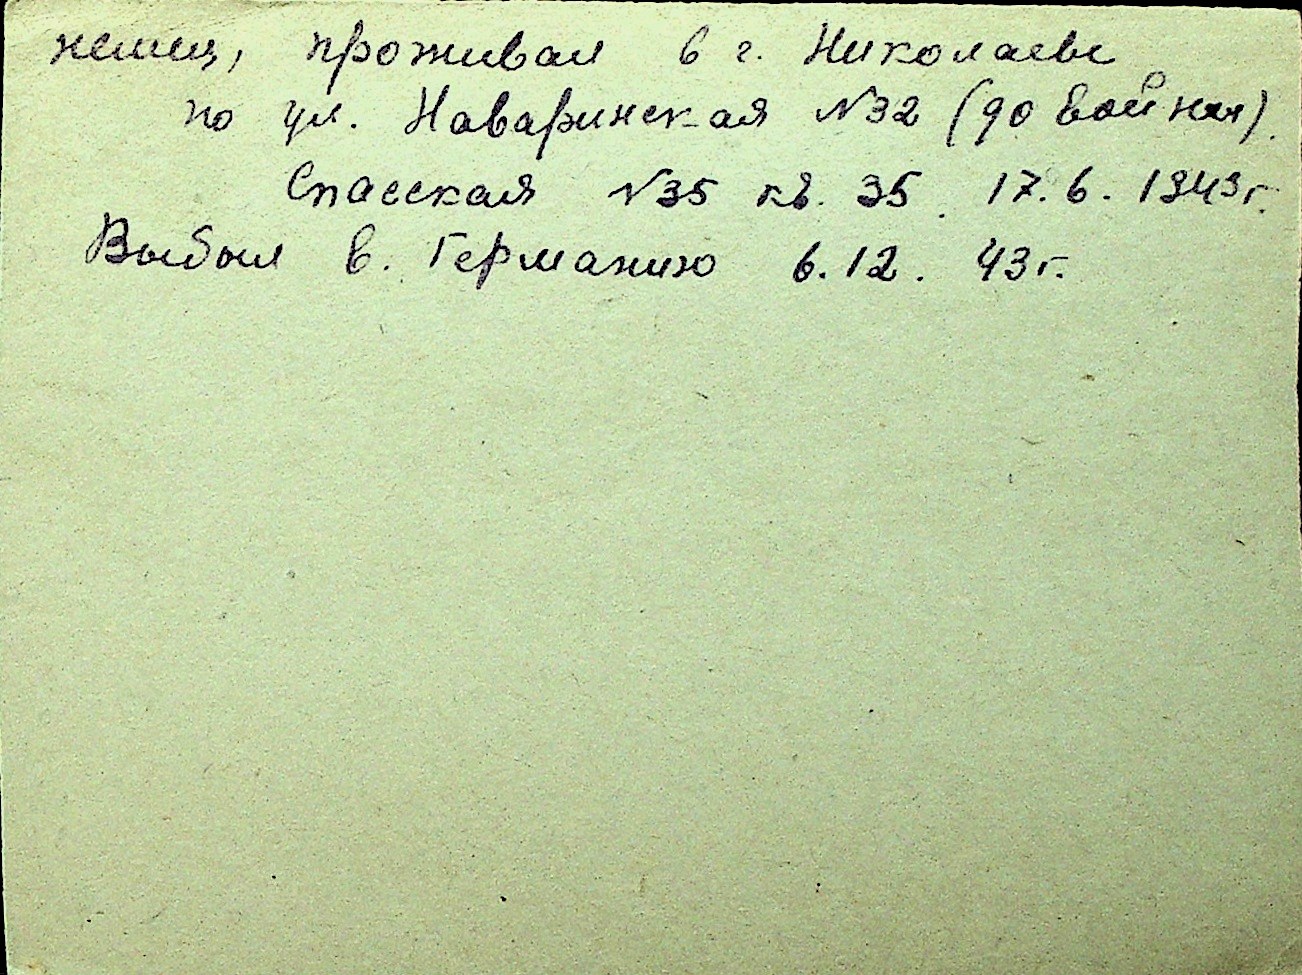 немец, проживал в г. Николаеве
по ул. Наваринская №32 (до войны).
Спасская №35 кв. 35. 17.6.1943г.
Выбыл в. Германию 6.12. 43г.